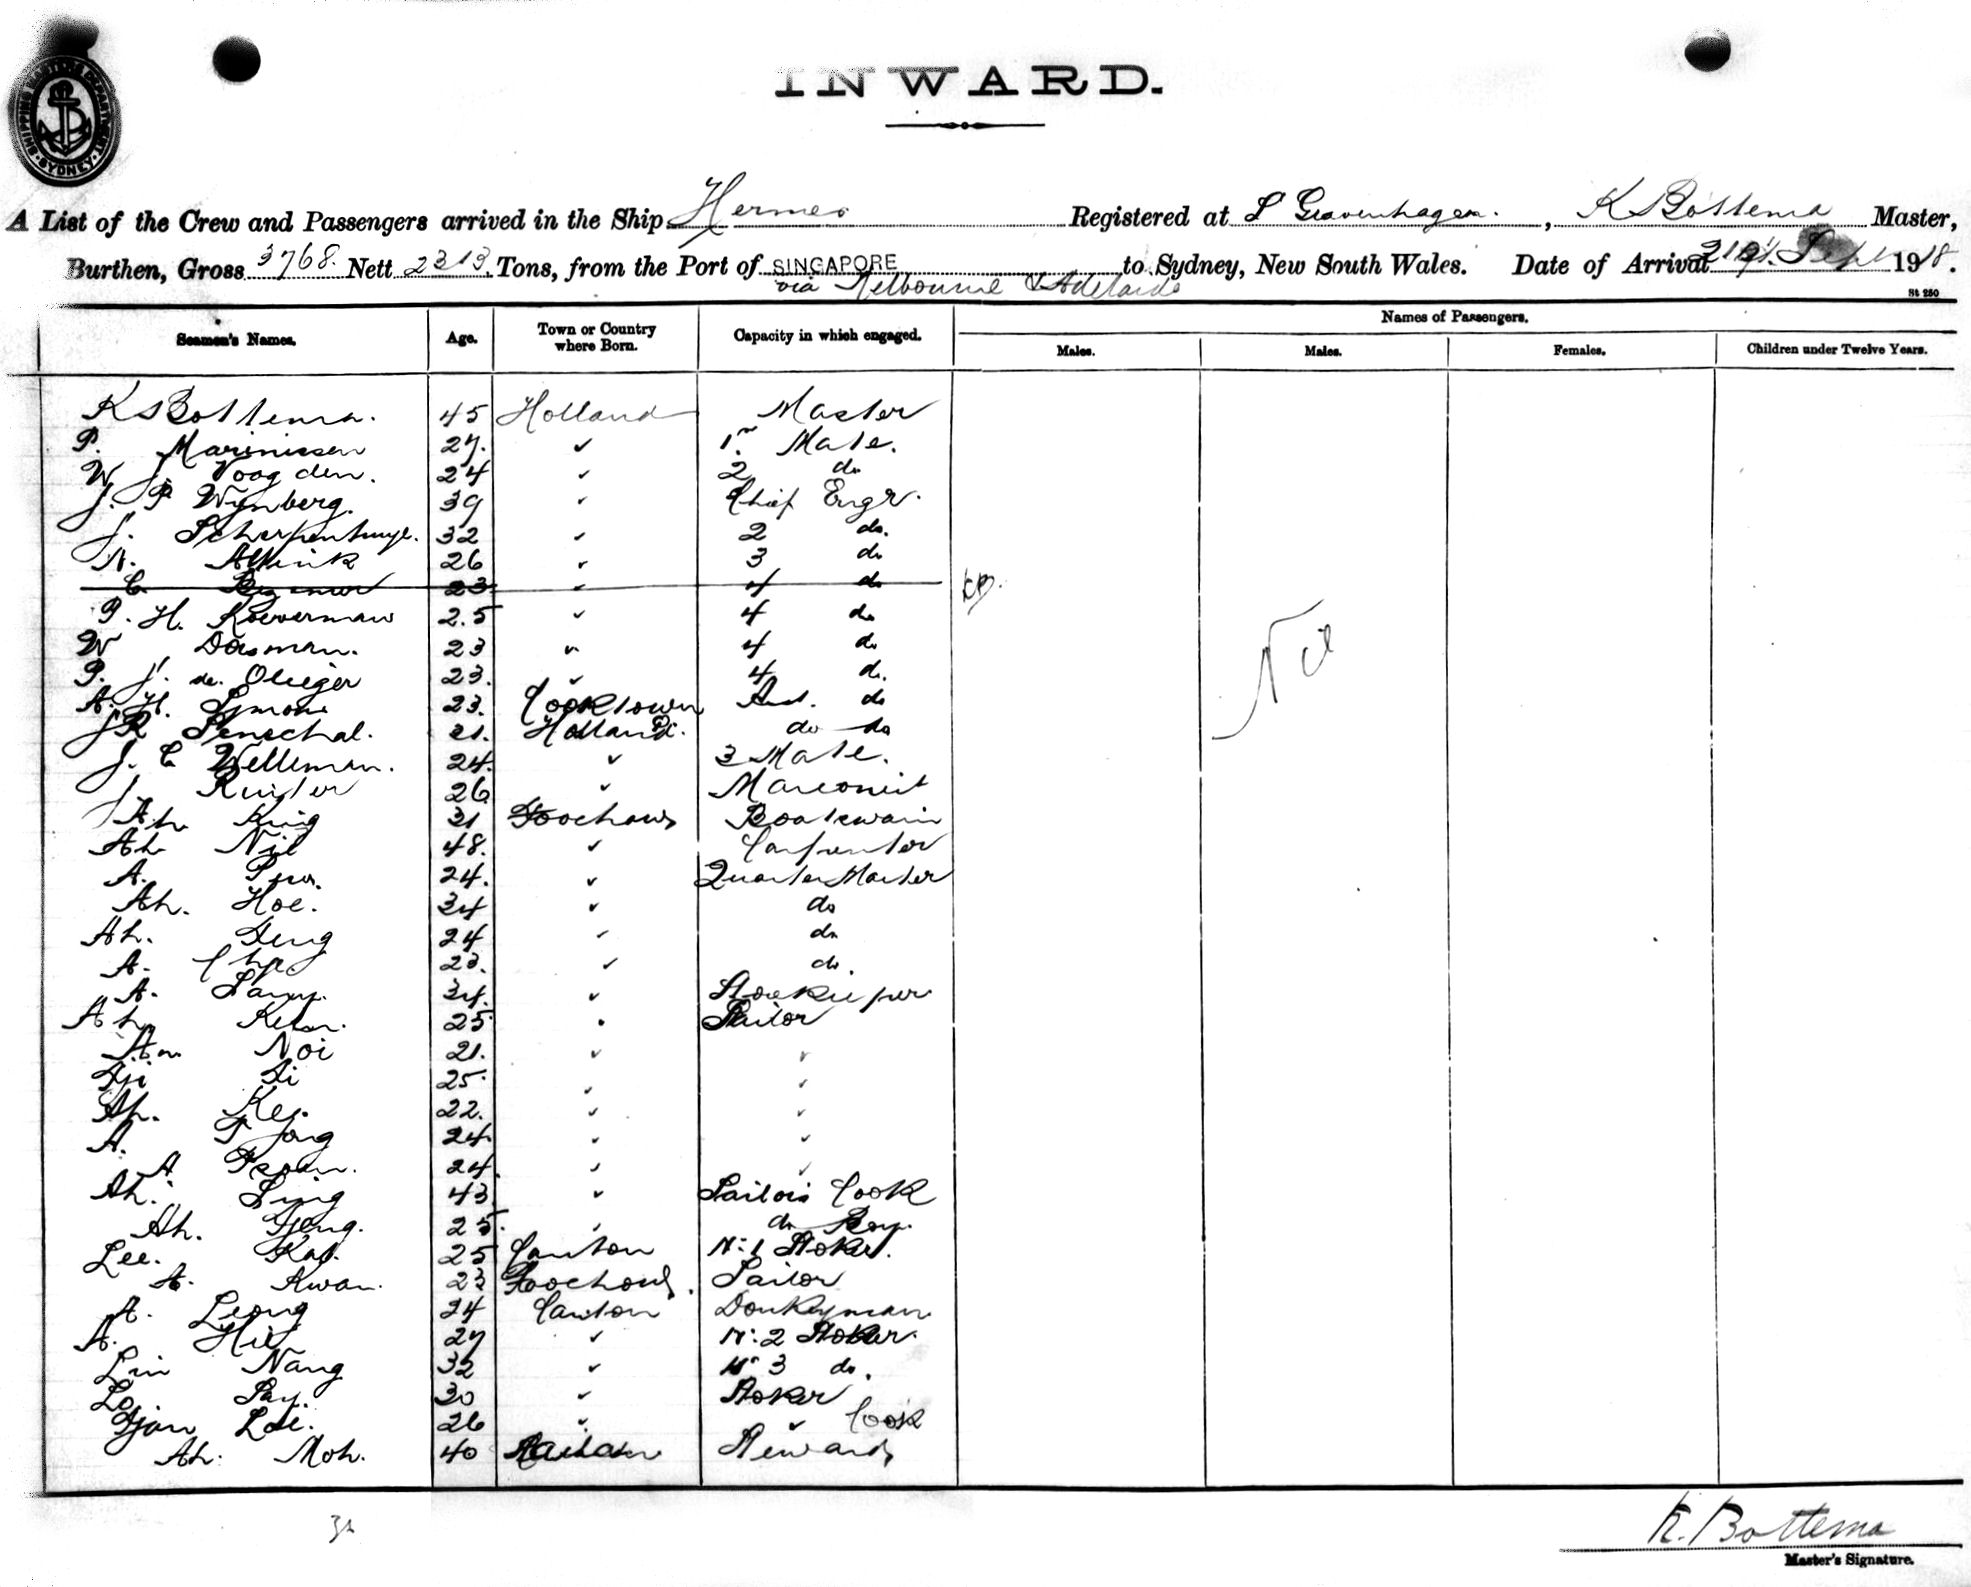 SHIPPING MASTER'S DEPARTMENT SYDNEY
INWARD.
A List of the Crew and Passengers arrived in the Ship Hermes Registered at S Gravenhagen. , K Bottema Master,
Burthen, Gross 3768. Nett 2313. Tons, from the Port of SINGAPORE to Sydney, New South Wales. Date of Arrival 21st Sept 1918.
via Melbourne & Adelaide
St 250
Seamen's Names. Age. Town or Country where Born. Capacity in which engaged. Names of Passengers.
Males. Males. Females. Children under Twelve Years.
K Bottema. 45 Holland Master
P. Marinissen 27. 1st Mate.
W J. Voogden. 24 2 do
J. P Wynberg. 39 Chief Engr.
J. Scherpenhuyl. 32 2 do.
A. Altink 26 3 do
C. 23 4 do KB.
P. H. Koeverman 2.5 4 do
W Dosman. 23 4 do
P. J. de Olieger 23. 4 do.
A. H. Symons 23. Cooktown Asst. do
J R Senschal. 21. Holland. do do
J. C Welleman. 24. 3 Mate.
J. Ruister 26 Marconist
Ah King 31 Foochow Boatswain
Ah Nil 48. Carpenter
A. 24. Quarter Master
Ah. Hoe. 34 do
Ah. Deng 24 do
A. 23. do.
A. 34. Storekeeper
Ah 25 Sailor
Noi 21.
25.
Ah. Key. 22.
A. Tjong 24.
A 24
Ah. Sing 43 Sailors Cook
Ah. Tjong. 25. do Boy.
Lee. Kat. 25 Canton No: 1 Stoker.
A. Kwan. 23 Foochow. Sailor
A. Leong 24 Canton Donkeyman
A. Hie 27 No: 2 Stoker.
Lin Nang 32 No 3 do.
Lo Say. 30 Stoker
Tjan Loi. 26 Cook
Ah. Moh. 40 Steward
Nil
K. Bottema
Master's Signature.